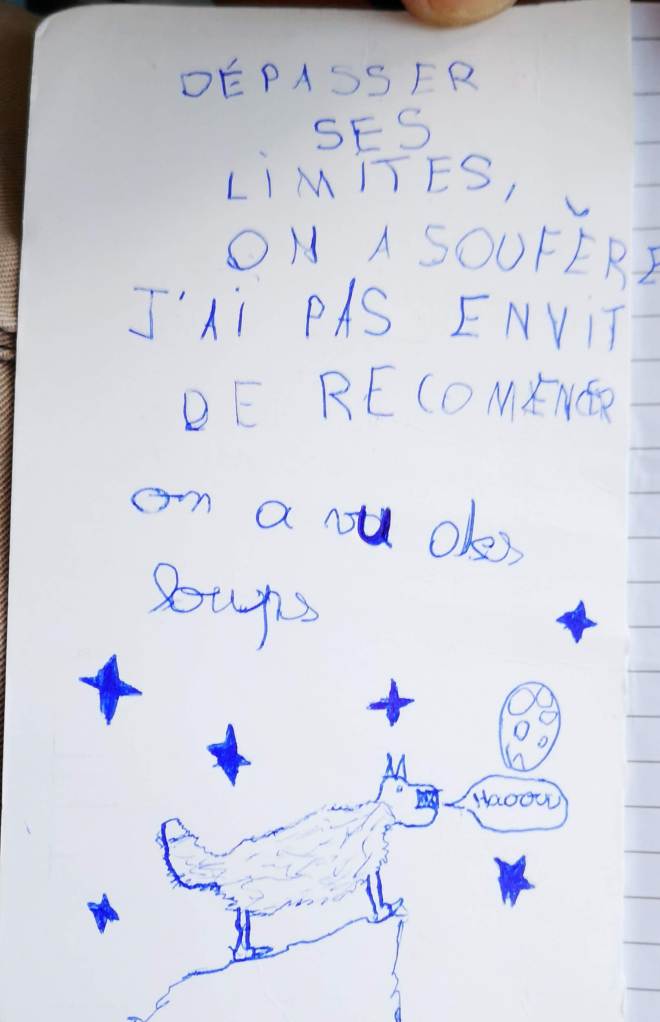 DÉPASSER
SES
LIMITES,
ON A SOUFĚRE
J'AI PAS ENVIT
DE RECOMENCER
on a vu des
loups
Haoou